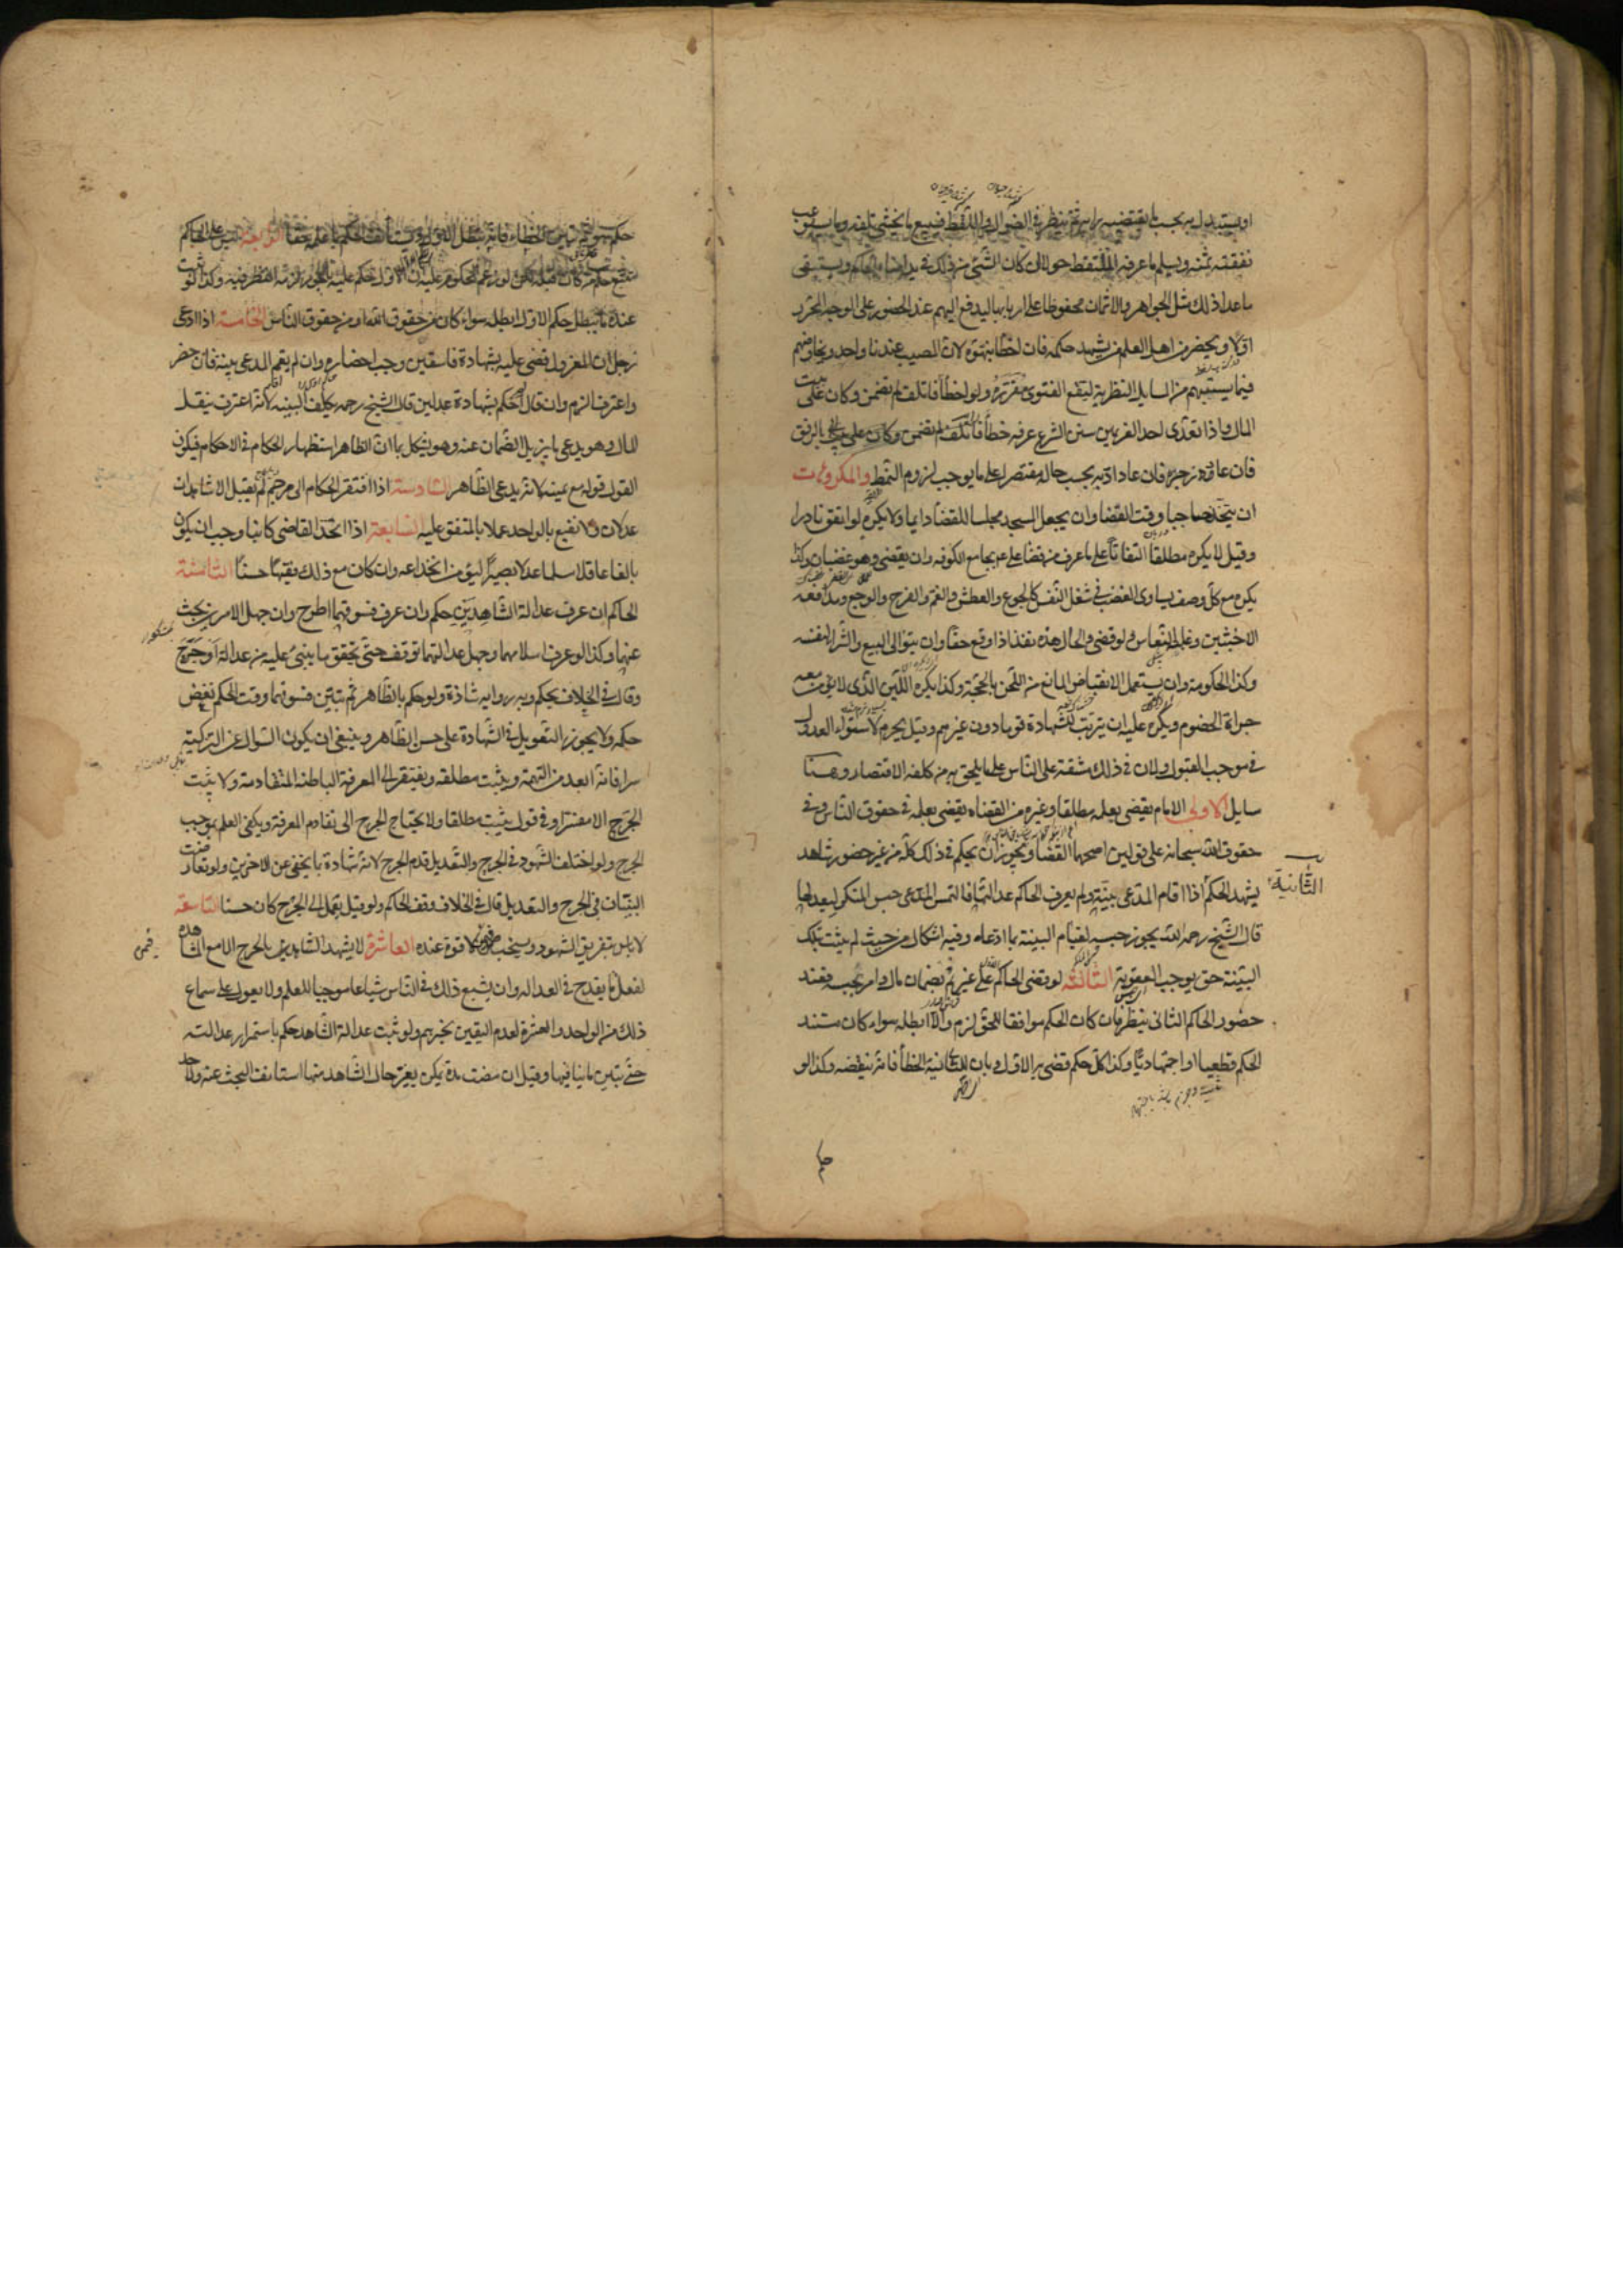 او يستبدل به بحسب ما يقتضيه رايه ثم ينظر في الضوال واللقط فيبيع ما يخشى تلفه وما يستوعب
نفقته ثمنه ويسلم ما عرفه الملتقط حولا ان كان الشئ من ذلك في يد امناء الحاكم ويستبقى
ما عدا ذلك مثل الجواهر والاثمان محفوظا على اربابها ليدفع اليهم عند الحضور على الوجه المحرر
اولا ويحضر من اهل العلم من يشهد حكمه فان اخطأ نبهوه لان المصيب عندنا واحد ويخاوضهم
فيما يستبهم من المسايل النظرية لتقع الفتوى مقررة ولو اخطأ فاتلف لم يضمن وكان على بيت
المال واذا تعدى احد الغريمين سنن الشرع عرفه خطأه بالرفق
فان عاد زجره فان عاد ادبه بحسب حاله مقتصرا على ما يوجب لزوم النمط والمكروهات
ان يتخذ حاجبا وقت القضا وان يجعل المسجد مجلسا للقضا دايما ولا يكره لو اتفق نادرا
وقيل لا يكره مطلقا التفاتا على ما عرف من قضا على ع بجامع الكوفه وان يقضى وهو غضبان وكذا
يكره مع كل وصف يساوى الغضب في شغل النفس كالجوع والعطش والغم والفرح والوجع ومدافعه
الاخبثين وغلبة النعاس ولو قضى والحال هذه نفذ اذا وقع حقا وان يتولى البيع والشرا لنفسه
وكذا الحكومة وان يستعمل الانقباض المانع من اللحن بالحجة وكذا يكره اللين الذى لا يؤمن معه
جراة الخصوم ويكره عليه ان يرتب للشهادة قوما دون غيرهم وقيل يحرم لاستواء العدول
في موجب القبول ولان في ذلك مشقة على الناس على ما يلحق به من كلفه الاقتصار وهنا
مسايل الاولى الامام يقضى بعلمه مطلقا وغيره من القضاه يقضى بعلمه في حقوق الناس وفي
حقوق الله سبحانه على قولين اصحهما القضا ويجوز ان يحكم في ذلك كله من غير حضور شاهد
الثانية
يشهد الحكم اذا اقام المدعى بينة ولم يعرف الحاكم عدالتها فالتمس المدعى حبس المنكر ليعدلها
قال الشيخ رحمه الله يجوز حبسه لقيام البينة بما ادعاه وفيه اشكال من حيث لم يثبت بتلك
البينة حق يوجب العقوبة الثالثة لو قضى الحاكم على غريم بضمان مال وامر بحبسه فعند
حضور الحاكم الثانى ينظر فان كان الحكم موافقا للحق لزم والا ابطله سواء كان مستند
الحكم قطعيا او اجتهاديا وكذا كل حكم قضى به الاول وبان للثانى فيه الخطأ فانه ينقضه وكذا لو
حكم هو ثم تبين الخطاء فانه يبطل الاول ويستأنف الحكم بما علمه حقا الرابعة ليس على الحاكم
تتبع حكم من كان قبله لكن لو زعم المحكوم عليه ان الاول حكم عليه بالجور لزمه النظر فيه وكذا لو ثبت
عنده ما يبطل حكم الاول ابطله سواء كان من حقوق الله او من حقوق الناس الخامسة اذا ادعى
رجل ان المعزول قضى عليه بشهادة فاسقين وجب احضاره وان لم يقم المدعى بينة فان حضر
واعترف الزم وان قال لم احكم الا بشهادة عدلين قال الشيخ رحمه يكلف البينه لانه اعترف بنقل
المال وهو يدعى بما يزيل الضمان عنه وهو يشكل بما ان الظاهر استظهار الحكام في الاحكام فيكون
القول قوله مع يمينه لانه يدعى الظاهر السادسة اذا افتقر الحاكم الى مترجم لم يقبل الا شاهدان
عدلان ولا يقنع بالواحد عملا بالمتفق عليه السابعة اذا اتخذ القاضى كاتبا وجب ان يكون
بالغا عاقلا مسلما عدلا بصيرا ليؤمن انخداعه وان كان مع ذلك فقيها كان حسنا الثامنة
الحاكم ان عرف عدالة الشاهدين حكم وان عرف فسوقهما اطرح وان جهل الامرين بحث
عنهما وكذا لو عرف اسلامهما وجهل عدالتهما توقف حتى تحقق ما يبنى عليه من عدالة او جرح
وقال في الخلاف يحكم وبه رواية شاذة ولو حكم بالظاهر ثم تبين فسوقهما وقت الحكم نقض
حكمه ولا يجوز التعويل في الشهادة على حسن الظاهر وينبغى ان يكون السؤال عن التزكية
سرا فانه ابعد من التهمة ويثبت مطلقه ويفتقر الى المعرفة الباطنه المتقادمة ولا يثبت
الجرح الا مفسرا وفي قول يثبت مطلقا ولا يحتاج الجرح الى تقادم المعرفة ويكفى العلم بموجب
الجرح ولو اختلف الشهود في الجرح والتعديل قدم الجرح لانه شهادة بما يخفى عن الاخرين ولو تعارضت
البينتان في الجرح والتعديل قال في الخلاف وقف الحاكم ولو قيل يعمل على الجرح كان حسنا التاسعة
لا باس بتفريق الشهود ويستحب فيمن لا قوة عنده العاشرة لا يشهد الشاهد بالجرح الا مع المشاهده
لفعل ما يقدح في العداله وان يشيع ذلك في الناس شياعا موجبا للعلم ولا يعول على سماع
ذلك من الواحد والعشرة لعدم اليقين بخبرهم ولو ثبت عدالة الشاهد حكم باستمرار عدالته
حتى يتبين ما ينافيها وقيل ان مضت مدة يمكن تغير حال الشاهد فيها استانف البحث عنه ولا حد